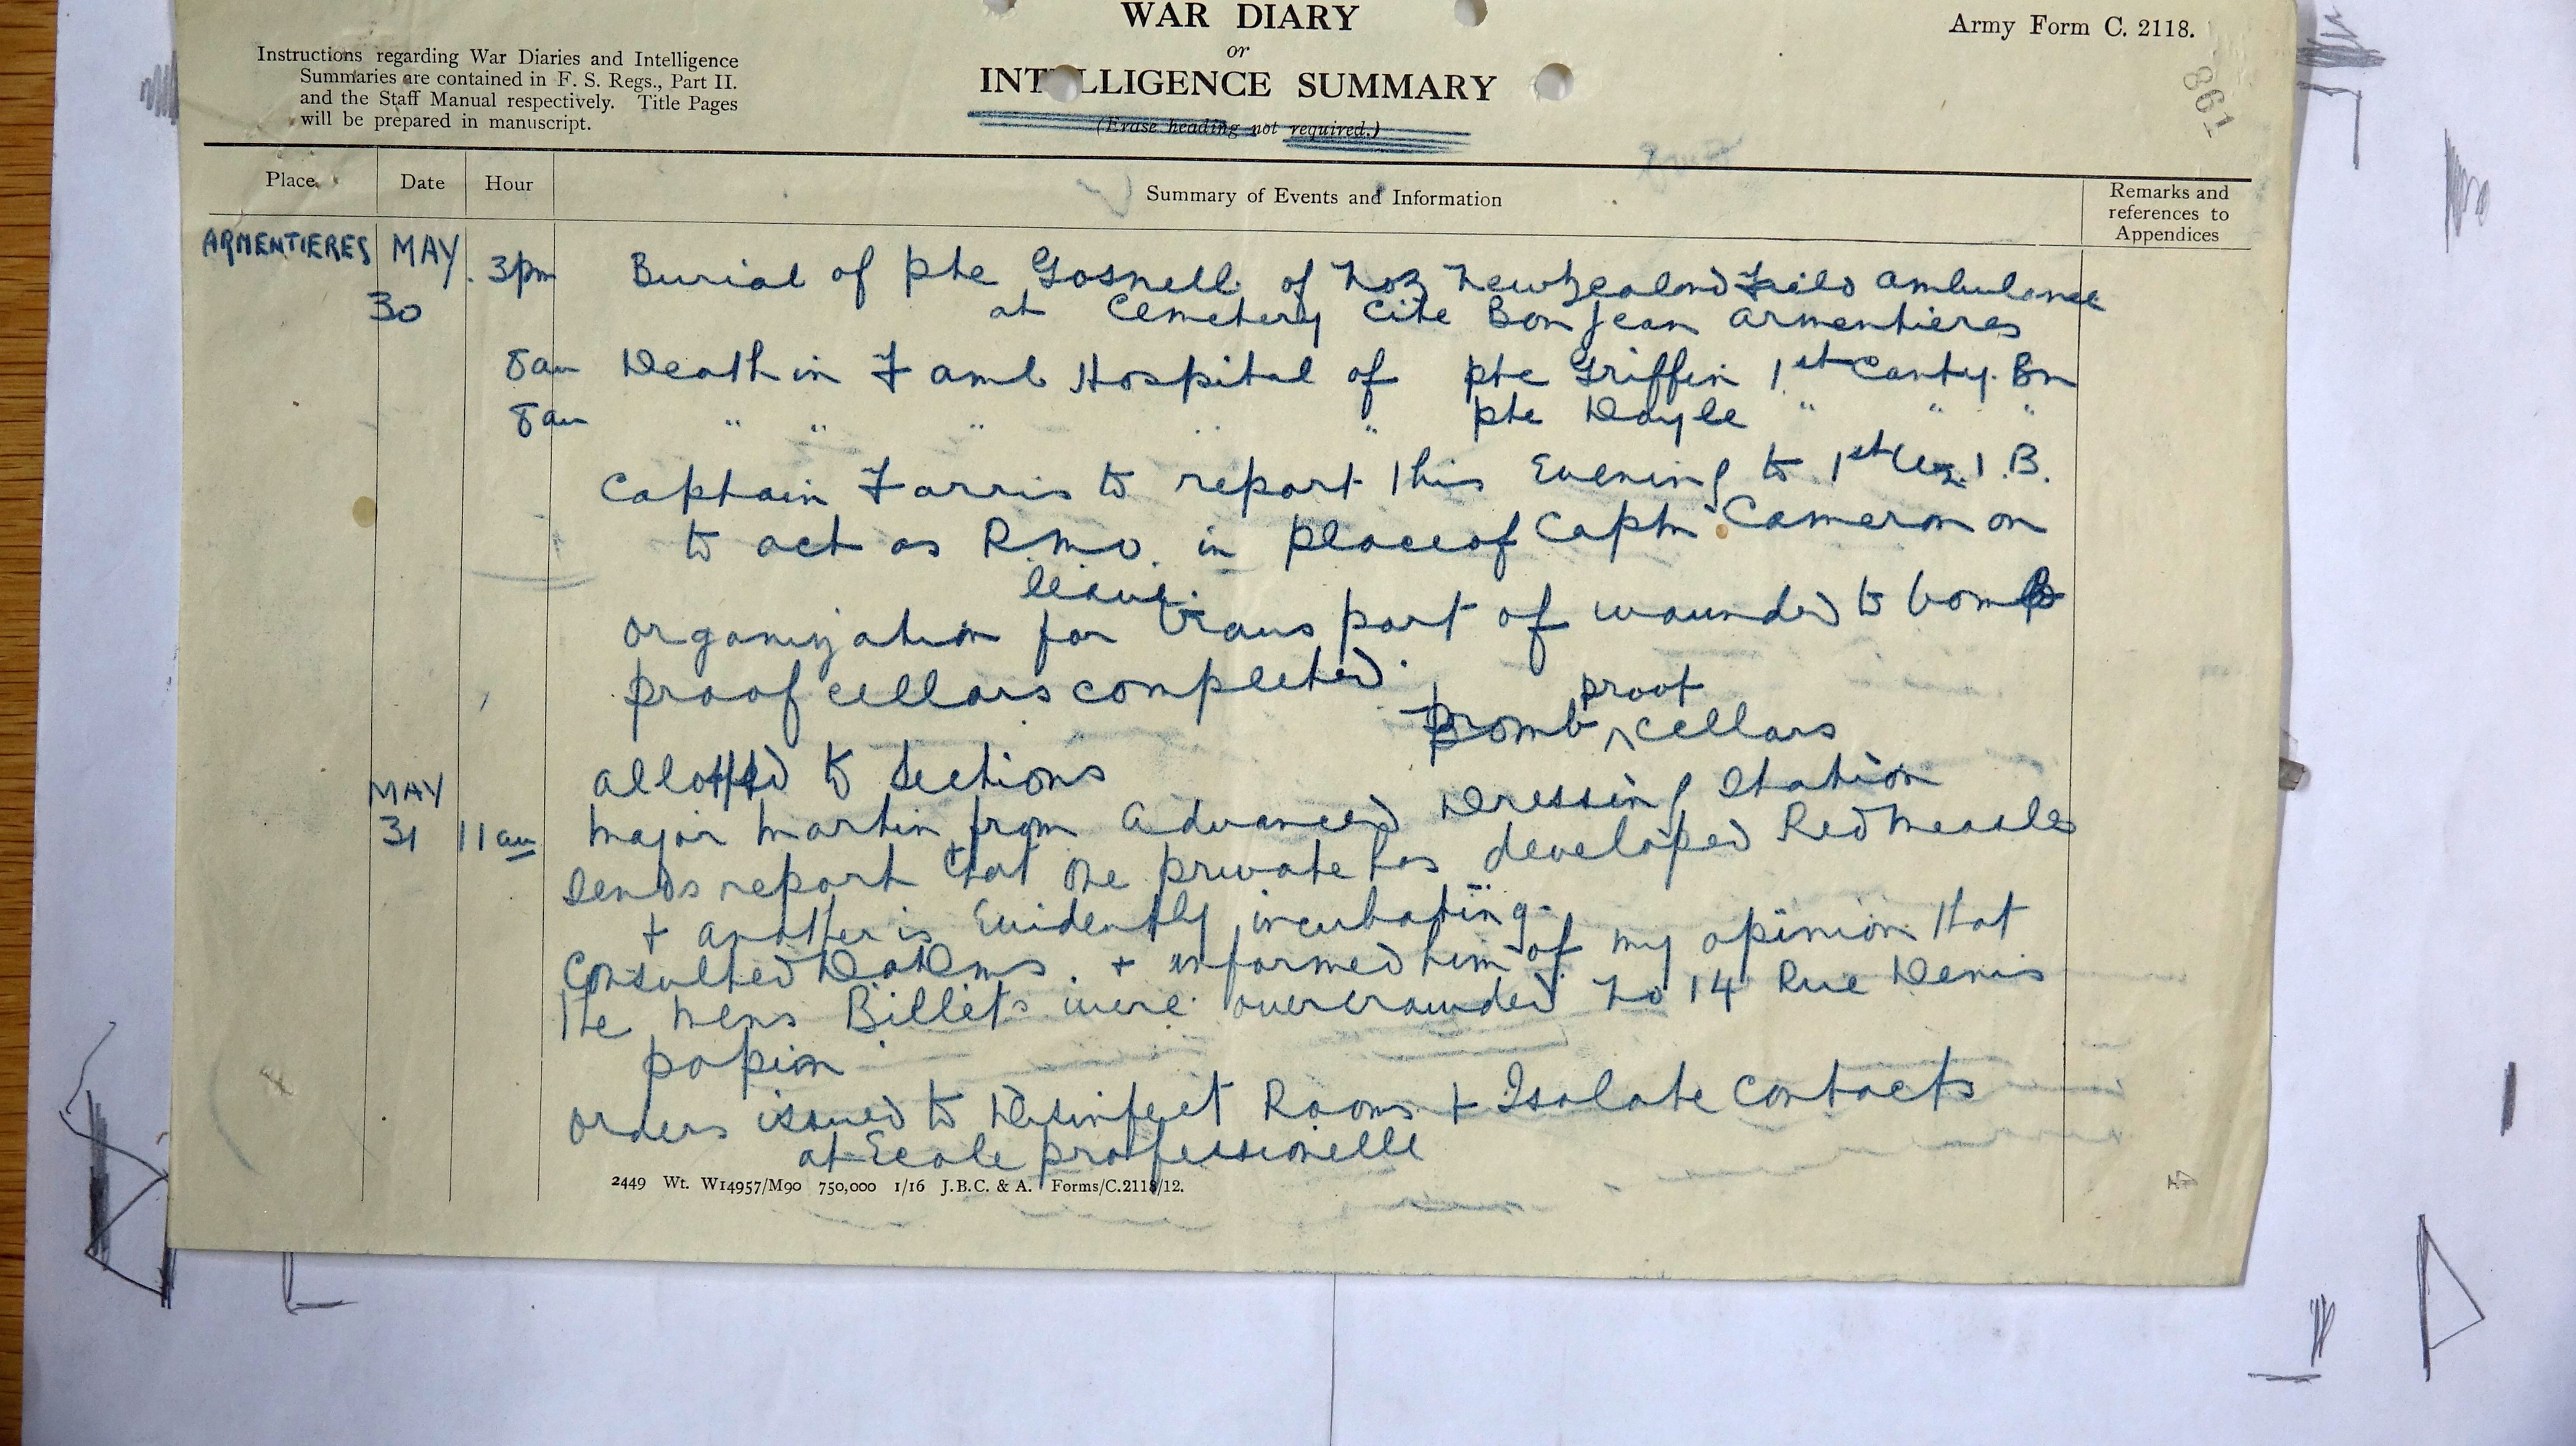 WAR DIARY
or
INTLLIGENCE SUMMARY
(Erase heading not required.)
Army Form C. 2118.
861
Instructions regarding War Diaries and Intelligence
Summaries are contained in F. S. Regs., Part II.
and the Staff Manual respectively. Title Pages
will be prepared in manuscript.
Place Date Hour Summary of Events and Information Remarks and
references to
Appendices
ARMENTIERES MAY 3pm Burial of pte Gosnell of No3 New Zealand Feild ambulance
30 at Cemetery Cite Bonjean armentieres
8am Death in F amb Hospital of pte Griffin 1st Canty. Bn
8am " " " " " pte Doyle " " "
Captain Farris to report this Evening to 1st I.B.
to act as RMO. in place of Captn Cameron on
leave.
organization for transport of wounded to bomb
proof cellars completed.
proof
Bomb ^ cellars
allotted to sections
MAY
31 11am Major Martin from Advanced Dressing Station
sends report that one private has developed Red Measles
+ another is Evidently incubating.
Consulted DADMS. + informed him of my opinion that
the mens Billets were overcrowded No 14 Rue Denis
papin
orders issued to Disinfect Rooms + Isolate contacts
at Ecole professionelle
2449 Wt. W14957/M90 750,000 1/16 J.B.C. & A. Forms/C.2118/12.